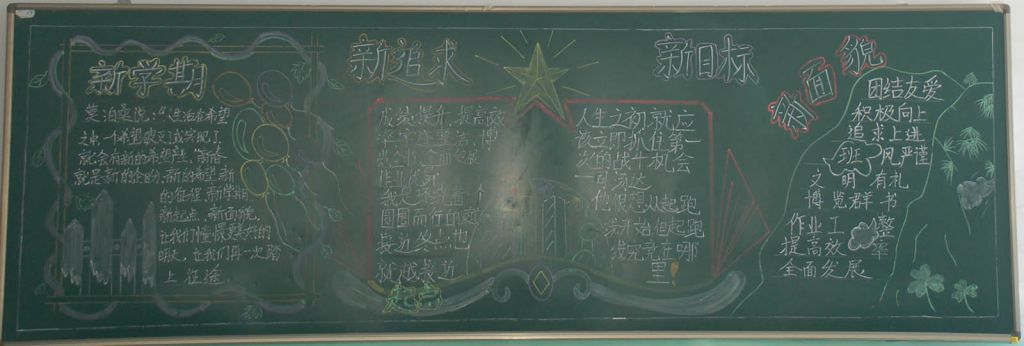 新学期
莫泊桑说:“人生活在希望
之中一个希望破灭了或实现了
就会有新的希望产生,新春
就是新的企盼,新的希望,新
的征程,新学期,
新起点、新面貌,
让我们憧憬更美好的
明天,让我们再一次踏
上征途
新追求
成绩提升,提高效
作业优秀
圆圆而行的
最近终点也
就越最近
新目标
人生之初就应
该立即抓住第一
次的战斗机会
他很想从起跑
线开始但起跑
线究竟在哪
里
新面貌
团结友爱
积极向上
追求上进
班风严谨
文明有礼
博览群书
作业工整
提高效率
全面发展